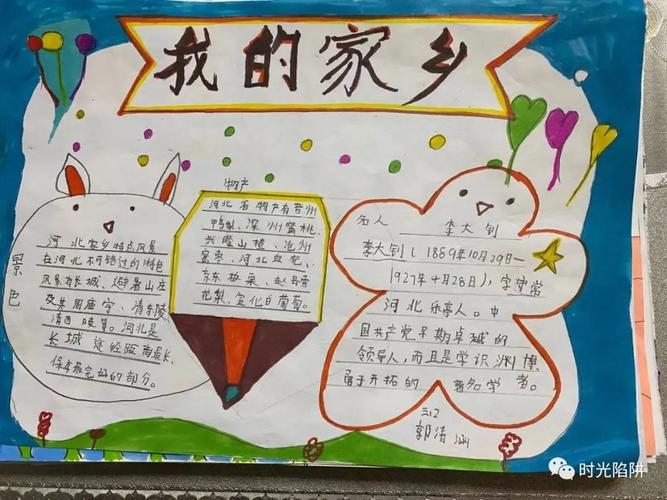 我的家乡
景色
河北家乡特点风景
在河北不错过的特色
风景有长城、避暑山庄
及其周庙宁、清东陵
清西陵等。河北是
长城途经距离最长,
保存最完好的部分。
物产
河北省物产有晋州
鸭梨、深州蜜桃,
兴隆山楂、沧州
金枣、河北血皂、
京东板栗、赵县雪
花梨、宣化白葡萄。
名人 李大钊
李大钊(1889年10月29日—
1927年4月28日),字守常
河北乐亭人。中
国共产党早期卓越的
领导人,而且是学识渊博
勇于开拓的著名学者。
三12
郭涵
时光陷阱